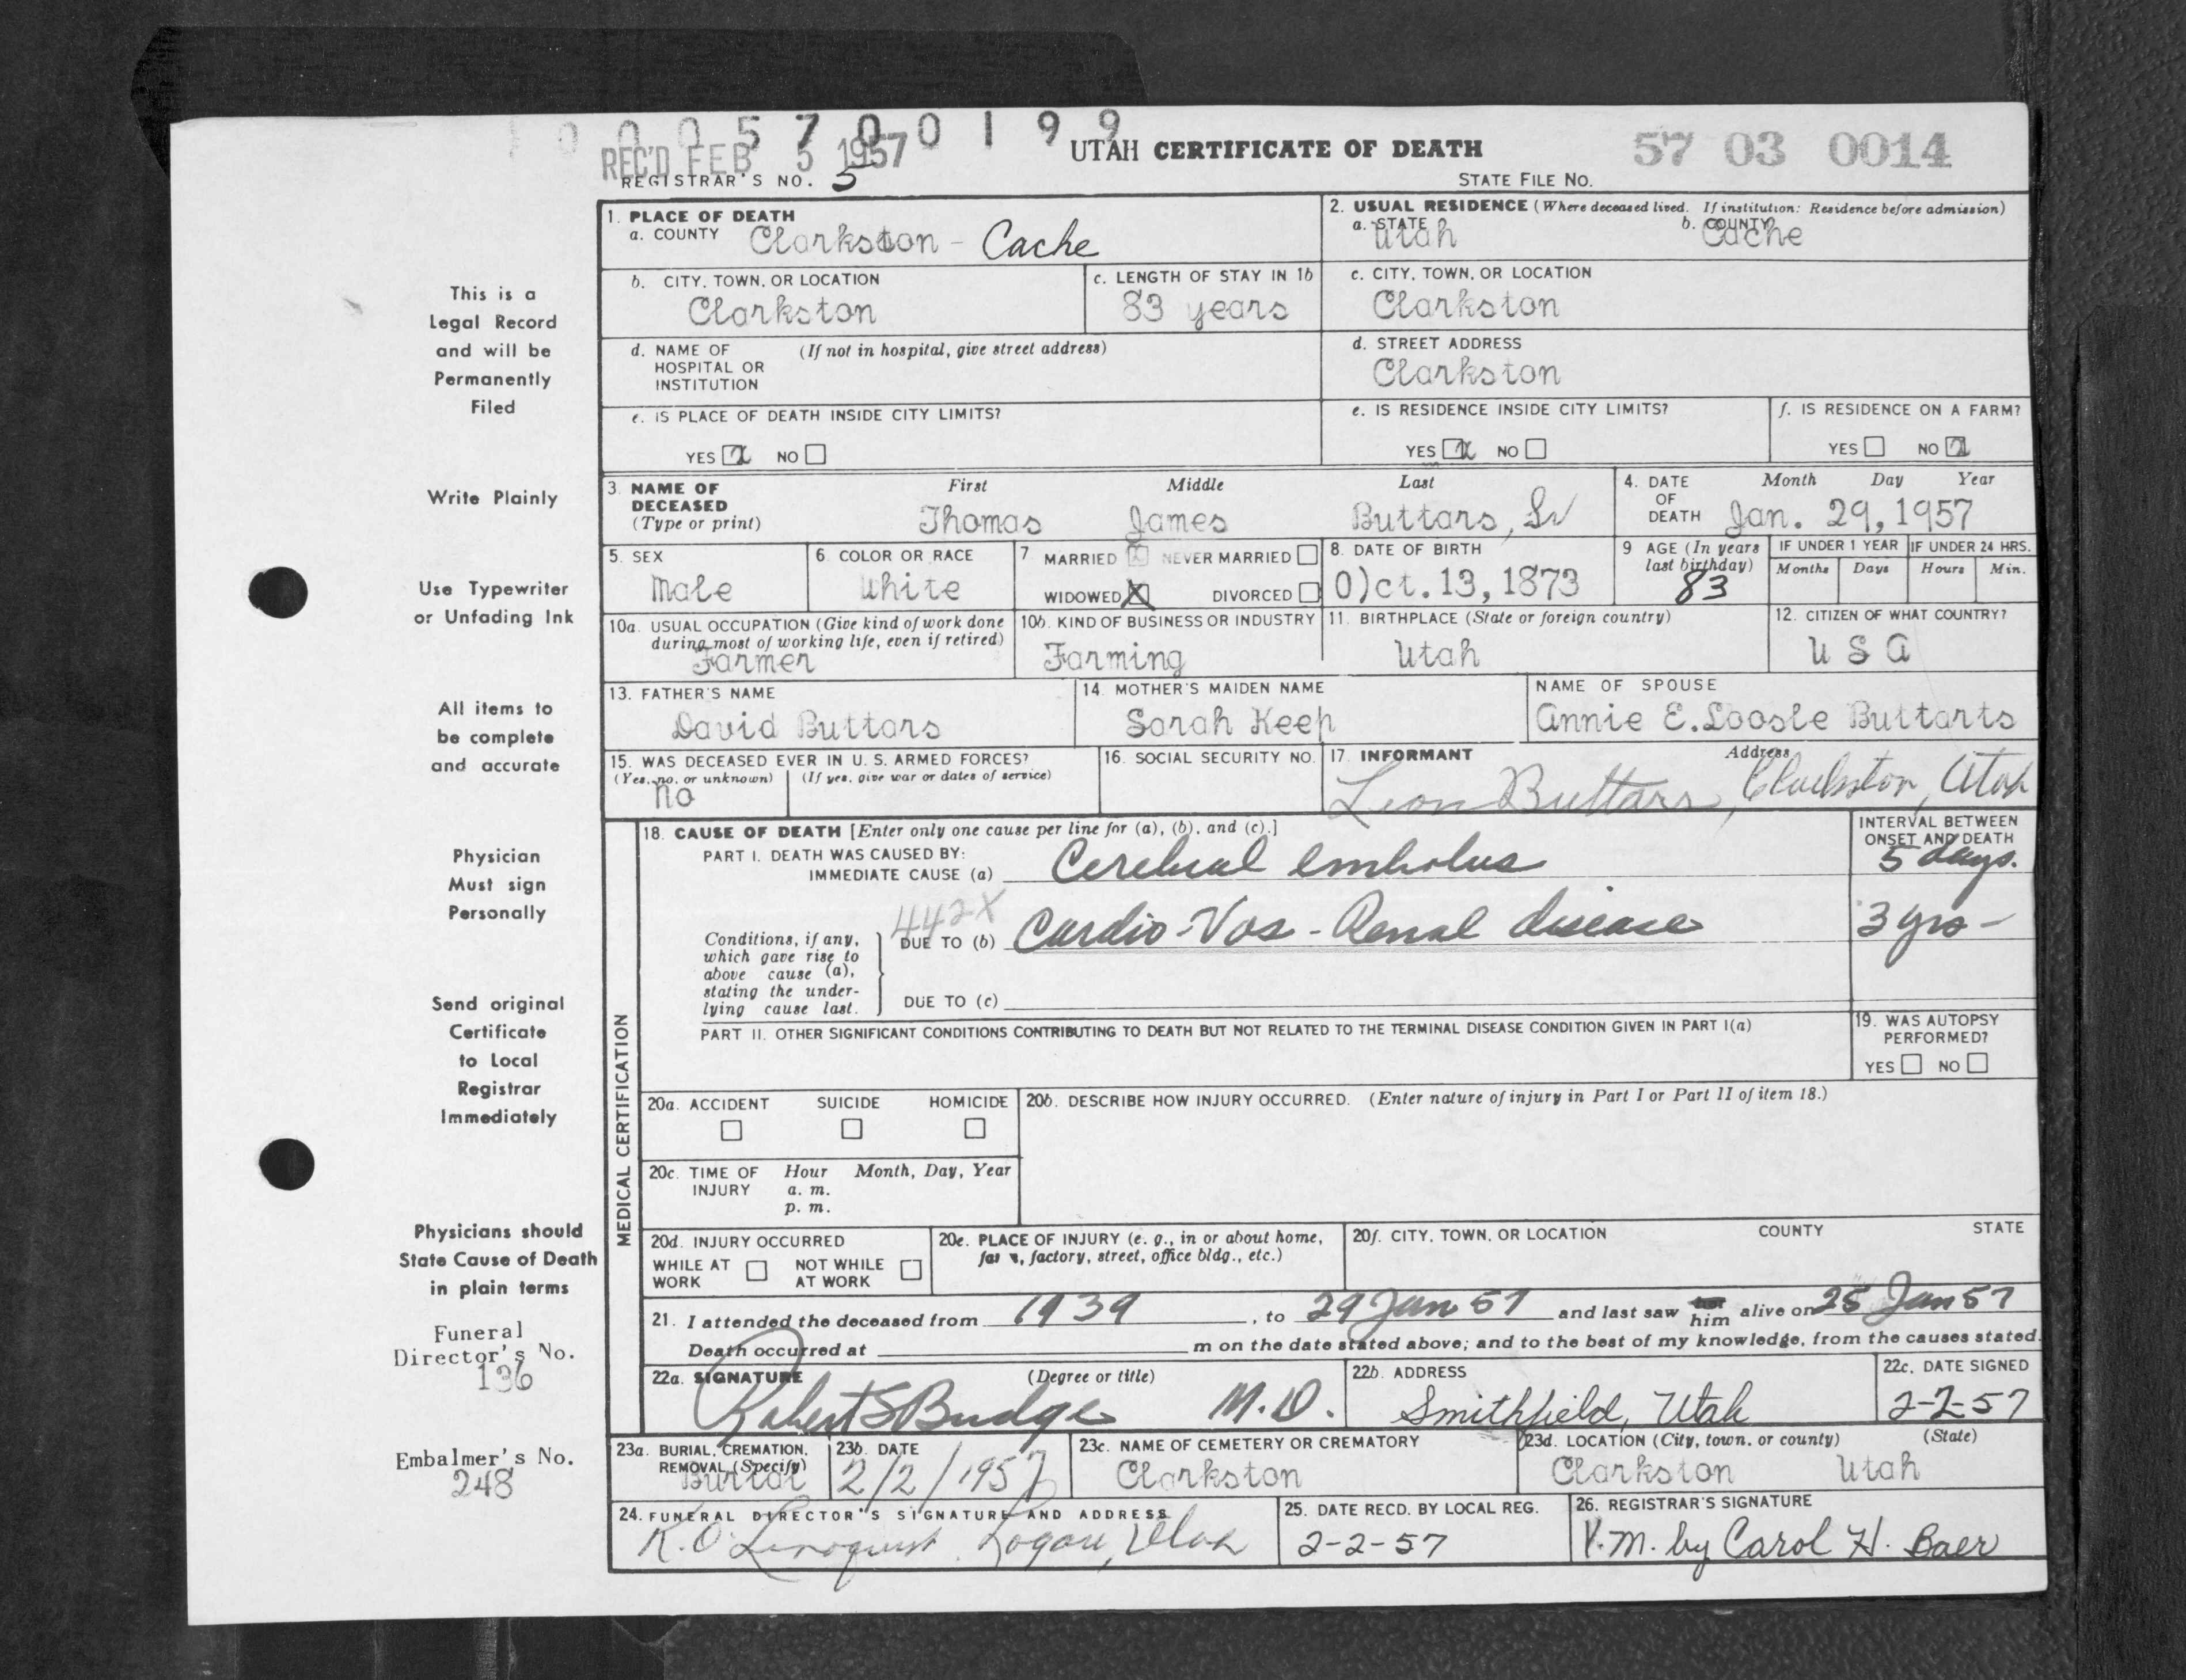 1 0 0 0 5 7 0 0 1 9 9
REC'D FEB 5 1957
UTAH CERTIFICATE OF DEATH
57 03 0014
REGISTRAR'S NO. 5
STATE FILE NO.
1. PLACE OF DEATH
a. COUNTY Clarkston - Cache
2. USUAL RESIDENCE (Where deceased lived. If institution: Residence before admission)
a. STATE Utah
b. COUNTY Cache
b. CITY, TOWN, OR LOCATION
Clarkston
c. LENGTH OF STAY IN 1b
83 years
c. CITY, TOWN, OR LOCATION
Clarkston
d. NAME OF HOSPITAL OR INSTITUTION
(If not in hospital, give street address)
d. STREET ADDRESS
Clarkston
e. IS PLACE OF DEATH INSIDE CITY LIMITS?
YES x NO
e. IS RESIDENCE INSIDE CITY LIMITS?
YES x NO
f. IS RESIDENCE ON A FARM?
YES NO x
3. NAME OF DECEASED (Type or print)
First Middle Last
Thomas James Buttars, Sr
4. DATE OF DEATH
Month Day Year
Jan. 29, 1957
5. SEX
Male
6. COLOR OR RACE
White
7. MARRIED x NEVER MARRIED
WIDOWED X DIVORCED
8. DATE OF BIRTH
O)ct. 13, 1873
9 AGE (In years last birthday)
83
IF UNDER 1 YEAR
Months Days
IF UNDER 24 HRS.
Hours Min.
10a. USUAL OCCUPATION (Give kind of work done during most of working life, even if retired)
Farmer
10b. KIND OF BUSINESS OR INDUSTRY
Farming
11. BIRTHPLACE (State or foreign country)
Utah
12. CITIZEN OF WHAT COUNTRY?
U S A
13. FATHER'S NAME
David Buttars
14. MOTHER'S MAIDEN NAME
Sarah Keep
NAME OF SPOUSE
Annie E. Loosle Buttarts
15. WAS DECEASED EVER IN U. S. ARMED FORCES?
(Yes, no, or unknown) (If yes, give war or dates of service)
no
16. SOCIAL SECURITY NO.
17. INFORMANT Address
Leon Buttars, Clarkston, Utah
MEDICAL CERTIFICATION
18. CAUSE OF DEATH [Enter only one cause per line for (a), (b), and (c).]
INTERVAL BETWEEN ONSET AND DEATH
PART I. DEATH WAS CAUSED BY:
IMMEDIATE CAUSE (a) Cerebral embolus 5 days.
442X
Conditions, if any, which gave rise to above cause (a), stating the underlying cause last.
DUE TO (b) Cardio-Vas-Renal disease 3 yrs -
DUE TO (c)
PART II. OTHER SIGNIFICANT CONDITIONS CONTRIBUTING TO DEATH BUT NOT RELATED TO THE TERMINAL DISEASE CONDITION GIVEN IN PART I(a)
19. WAS AUTOPSY PERFORMED?
YES NO
20a. ACCIDENT SUICIDE HOMICIDE
20b. DESCRIBE HOW INJURY OCCURRED. (Enter nature of injury in Part I or Part II of item 18.)
20c. TIME OF INJURY
Hour Month, Day, Year
a. m.
p. m.
20d. INJURY OCCURRED
WHILE AT WORK NOT WHILE AT WORK
20e. PLACE OF INJURY (e. g., in or about home, farm, factory, street, office bldg., etc.)
20f. CITY, TOWN, OR LOCATION COUNTY STATE
21. I attended the deceased from 1939, to 29 Jan 57 and last saw her him alive on 25 Jan 57
Death occurred at m on the date stated above; and to the best of my knowledge, from the causes stated.
22a. SIGNATURE (Degree or title)
Robert S Budge M.D.
22b. ADDRESS
Smithfield, Utah
22c. DATE SIGNED
2-2-57
23a. BURIAL, CREMATION, REMOVAL (Specify)
Burial
23b. DATE
2/2/1957
23c. NAME OF CEMETERY OR CREMATORY
Clarkston
23d. LOCATION (City, town, or county) (State)
Clarkston Utah
24. FUNERAL DIRECTOR'S SIGNATURE AND ADDRESS
K. O. Lindquist Logan, Utah
25. DATE RECD. BY LOCAL REG.
2-2-57
26. REGISTRAR'S SIGNATURE
V.M. by Carol H. Baer
This is a
Legal Record
and will be
Permanently
Filed
Write Plainly
Use Typewriter
or Unfading Ink
All items to
be complete
and accurate
Physician
Must sign
Personally
Send original
Certificate
to Local
Registrar
Immediately
Physicians should
State Cause of Death
in plain terms
Funeral
Director's No.
136
Embalmer's No.
248